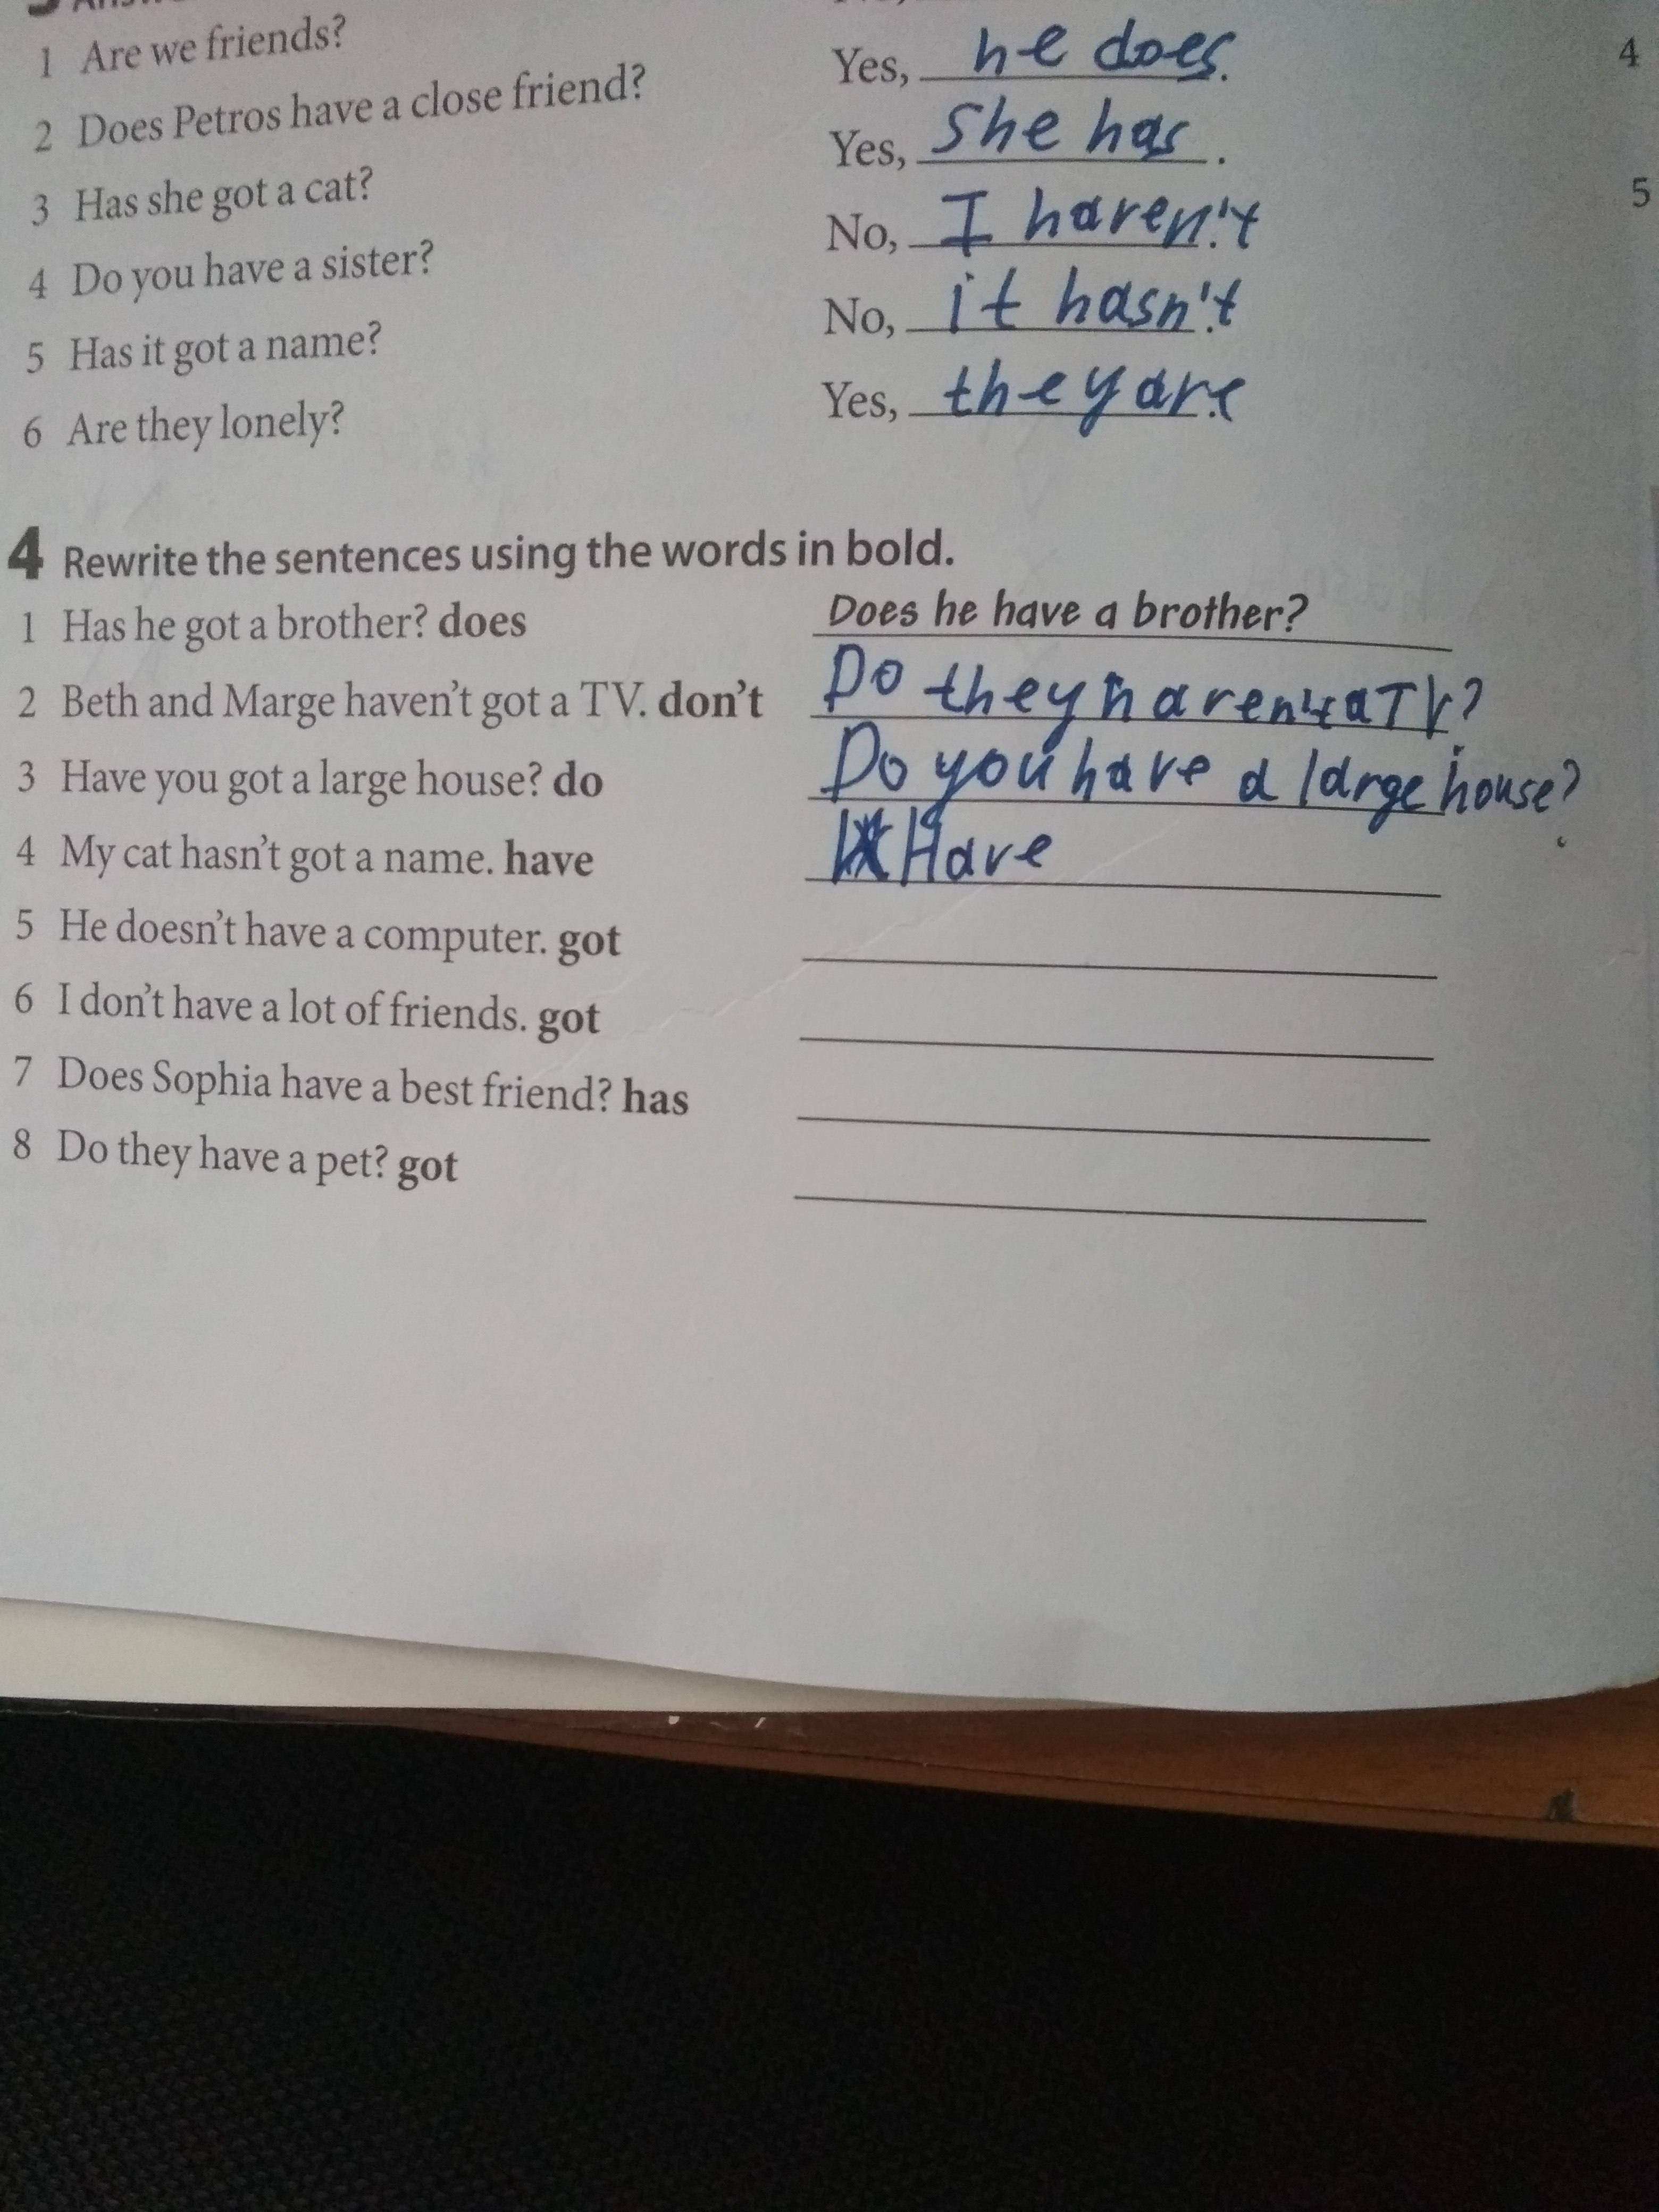 1 Are we friends?
4
Yes, he does.
2 Does Petros have a close friend?
Yes, she has.
3 Has she got a cat?
5
No, I haven't.
4 Do you have a sister?
No, it hasn't.
5 Has it got a name?
Yes, they are.
6 Are they lonely?
4 Rewrite the sentences using the words in bold.
1 Has he got a brother? does Does he have a brother?
2 Beth and Marge haven't got a TV. don't Do they haven't a TV?
3 Have you got a large house? do Do you have a large house?
4 My cat hasn't got a name. have Have
5 He doesn't have a computer. got
6 I don't have a lot of friends. got
7 Does Sophia have a best friend? has
8 Do they have a pet? got